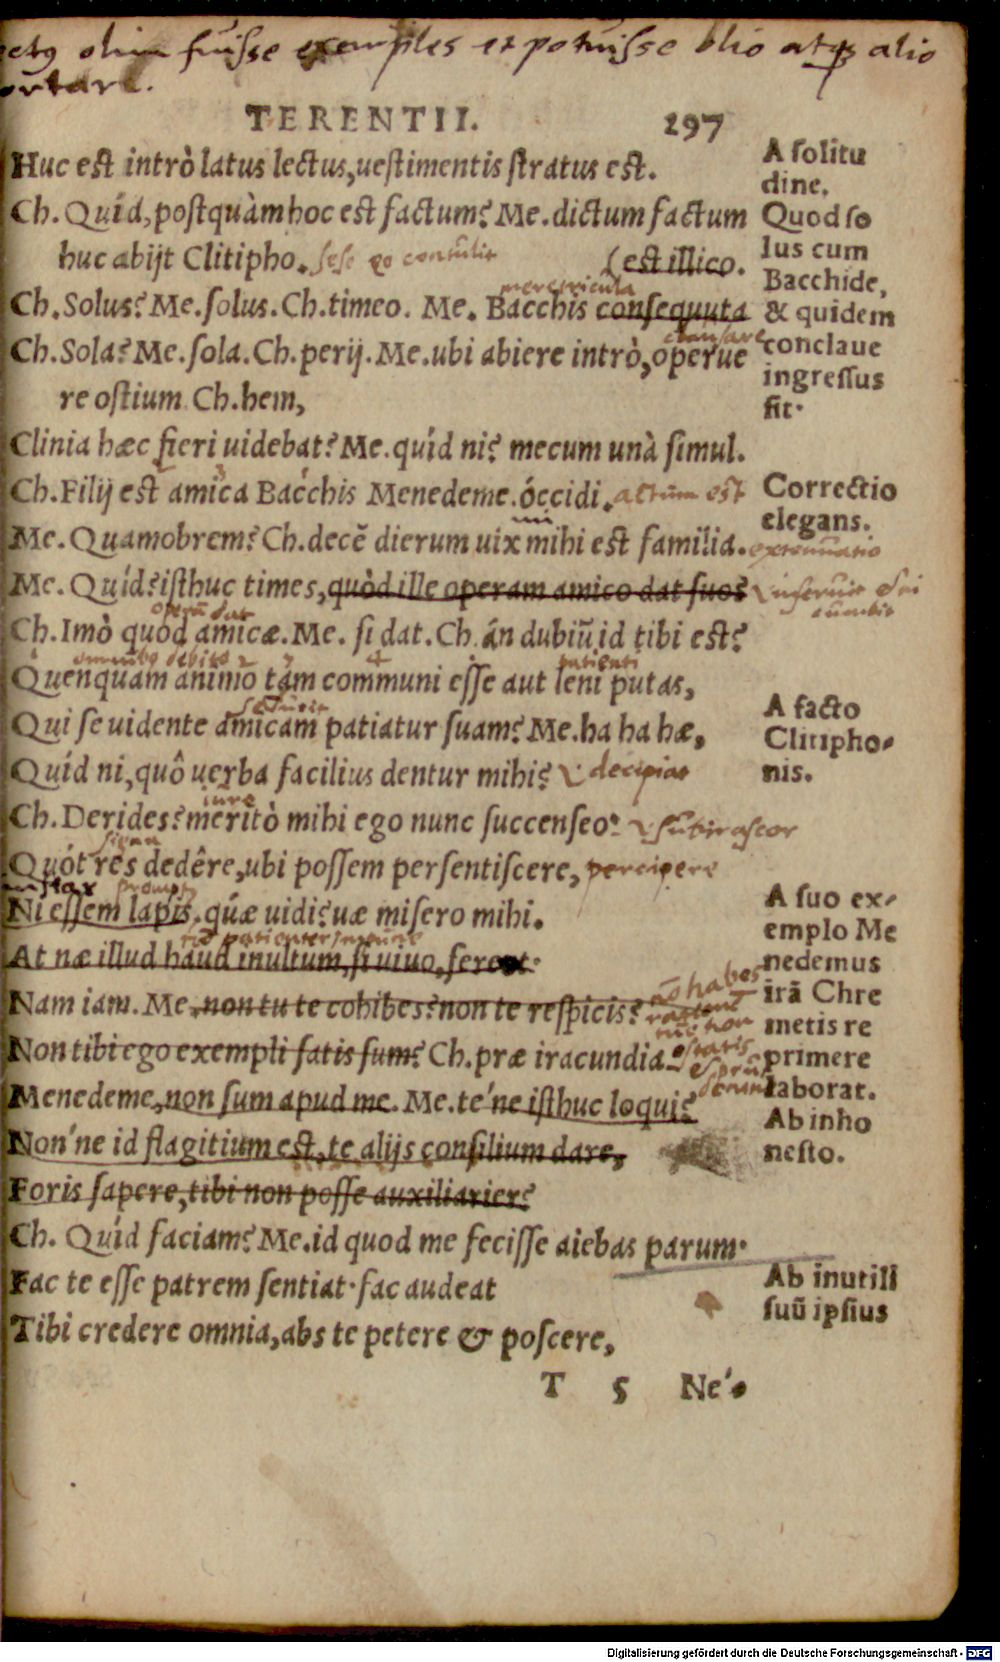 olim fuisse exemples et potuisse alio atq alio
TERENTII. 297
Huc est intrò latus lectus, uestimentis stratus est.
Ch. Quid, postquàm hoc est factum? Me. dictum factum
huc abijt Clitipho. sese eo contulit (est illico.
meretricula
Ch. Solus? Me. solus. Ch. timeo. Me. Bacchis consequuta
Ch. Sola? Me. sola. Ch. perij. Me. ubi abiere intrò, operue
re ostium Ch. hem,
Clinia hæc fieri uidebat? Me. quid ni? mecum unà simul.
Ch. Filij est amica Bacchis Menedeme. óccidi. actum est
Me. Quamobrem? Ch. decē dierum uix mihi est familia. extenuatio
Me. Quid? isthuc times, quòd ille operam amico dat suo?
operā dat
Ch. Imò quòd amicæ. Me. si dat. Ch. án dubiū id tibi est?
patienti
Quenquam animo tàm communi esse aut leni putas,
Qui se uidente amicam patiatur suam? Me. ha ha hæ,
Quid ni, quô uerba facilius dentur mihi? decipiat
iure
Ch. Derides? meritò mihi ego nunc succenseo: subirascor
signa
Quót res dedêre, ubi possem persentiscere, percipere
Ni essem lapis, quæ uidi? uæ misero mihi.
At næ illud haud inultum, si uiuo, ferent.
Nam iam. Me. non tu te cohibes? non te respicis?
Non tibi ego exempli satis sum? Ch. præ iracundia
Menedeme, non sum apud me. Me. te'ne isthuc loqui?
Non'ne id flagitium est, te alijs consilium dare,
Foris sapere, tibi non posse auxiliarier?
Ch. Quid faciam? Me. id quod me fecisse aiebas parum.
Fac te esse patrem sentiat. fac audeat
Tibi credere omnia, abs te petere & poscere,
T 5 Ne'.
A solitu
dine.
Quod so
lus cum
Bacchide,
& quidem
conclaue
ingressus
sit.
Correctio
elegans.
A facto
Clitipho-
nis.
A suo ex-
emplo Me
nedemus
irā Chre
metis re
primere
laborat.
Ab inho
nesto.
Ab inutili
suū ipsius
Digitalisierung gefördert durch die Deutsche Forschungsgemeinschaft - DFG